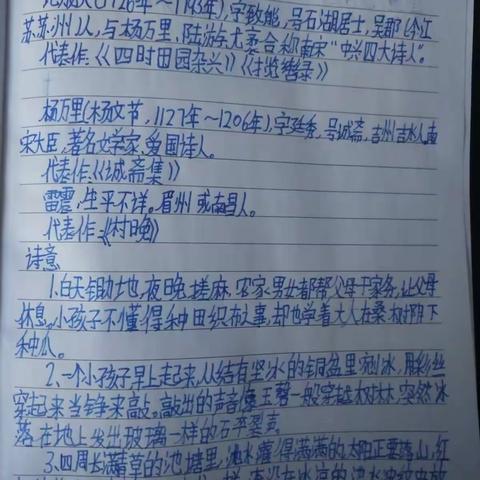 1126年～1193年),字致能,号石湖居士,吴郡(今江
苏苏州)人,与杨万里、陆游、尤袤合称南宋“中兴四大诗人”。
代表作:《四时田园杂兴》《揽辔录》
杨万里(杨文节,1127年～1206年),字廷秀,号诚斋,吉州吉水人,南
宋大臣,著名文学家、爱国诗人。
代表作:《诚斋集》
雷震,生平不详。眉州或南昌人。
代表作:《村晚》
诗意
1.白天锄地,夜晚搓麻,农家男女都帮父母干家务,让父母
休息。小孩子不懂得种田织布之事,却也学着大人在桑树阴下
种瓜。
2、一个小孩子早上起来,从结有坚冰的铜盆里剜冰,用彩丝
穿起来当铮来敲。敲出的声音像玉磬一般穿越树林,突然冰
落在地上发出玻璃一样的碎声。
3.四周长满草的池塘里,池水灌得满满的,太阳正要落山,红